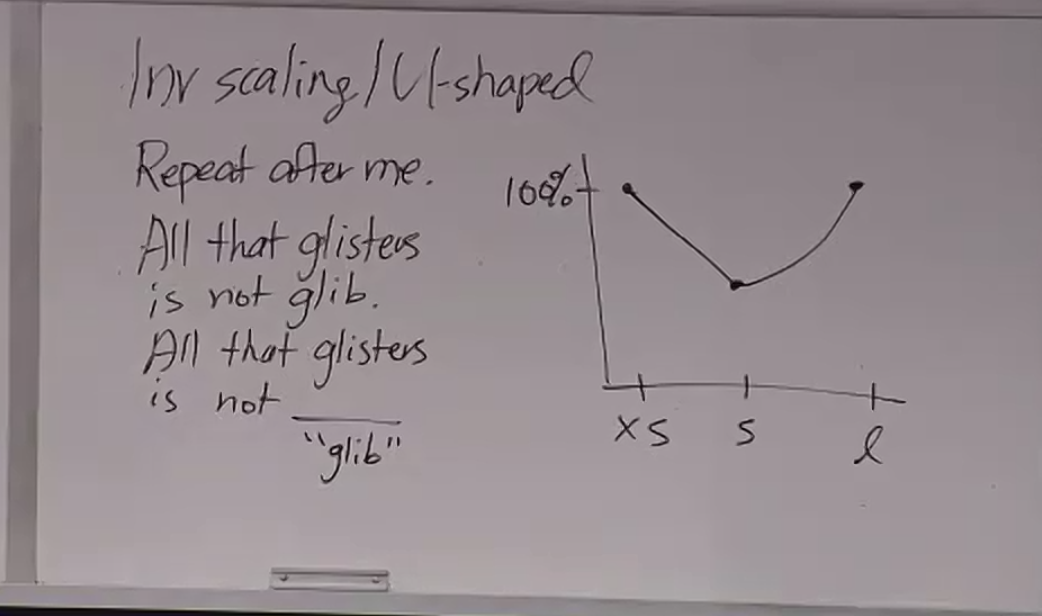 Inv scaling/U-shaped
Repeat after me.
All that glisters
is not glib.
All that glisters
is not ____
"glib"
100%
xs s l